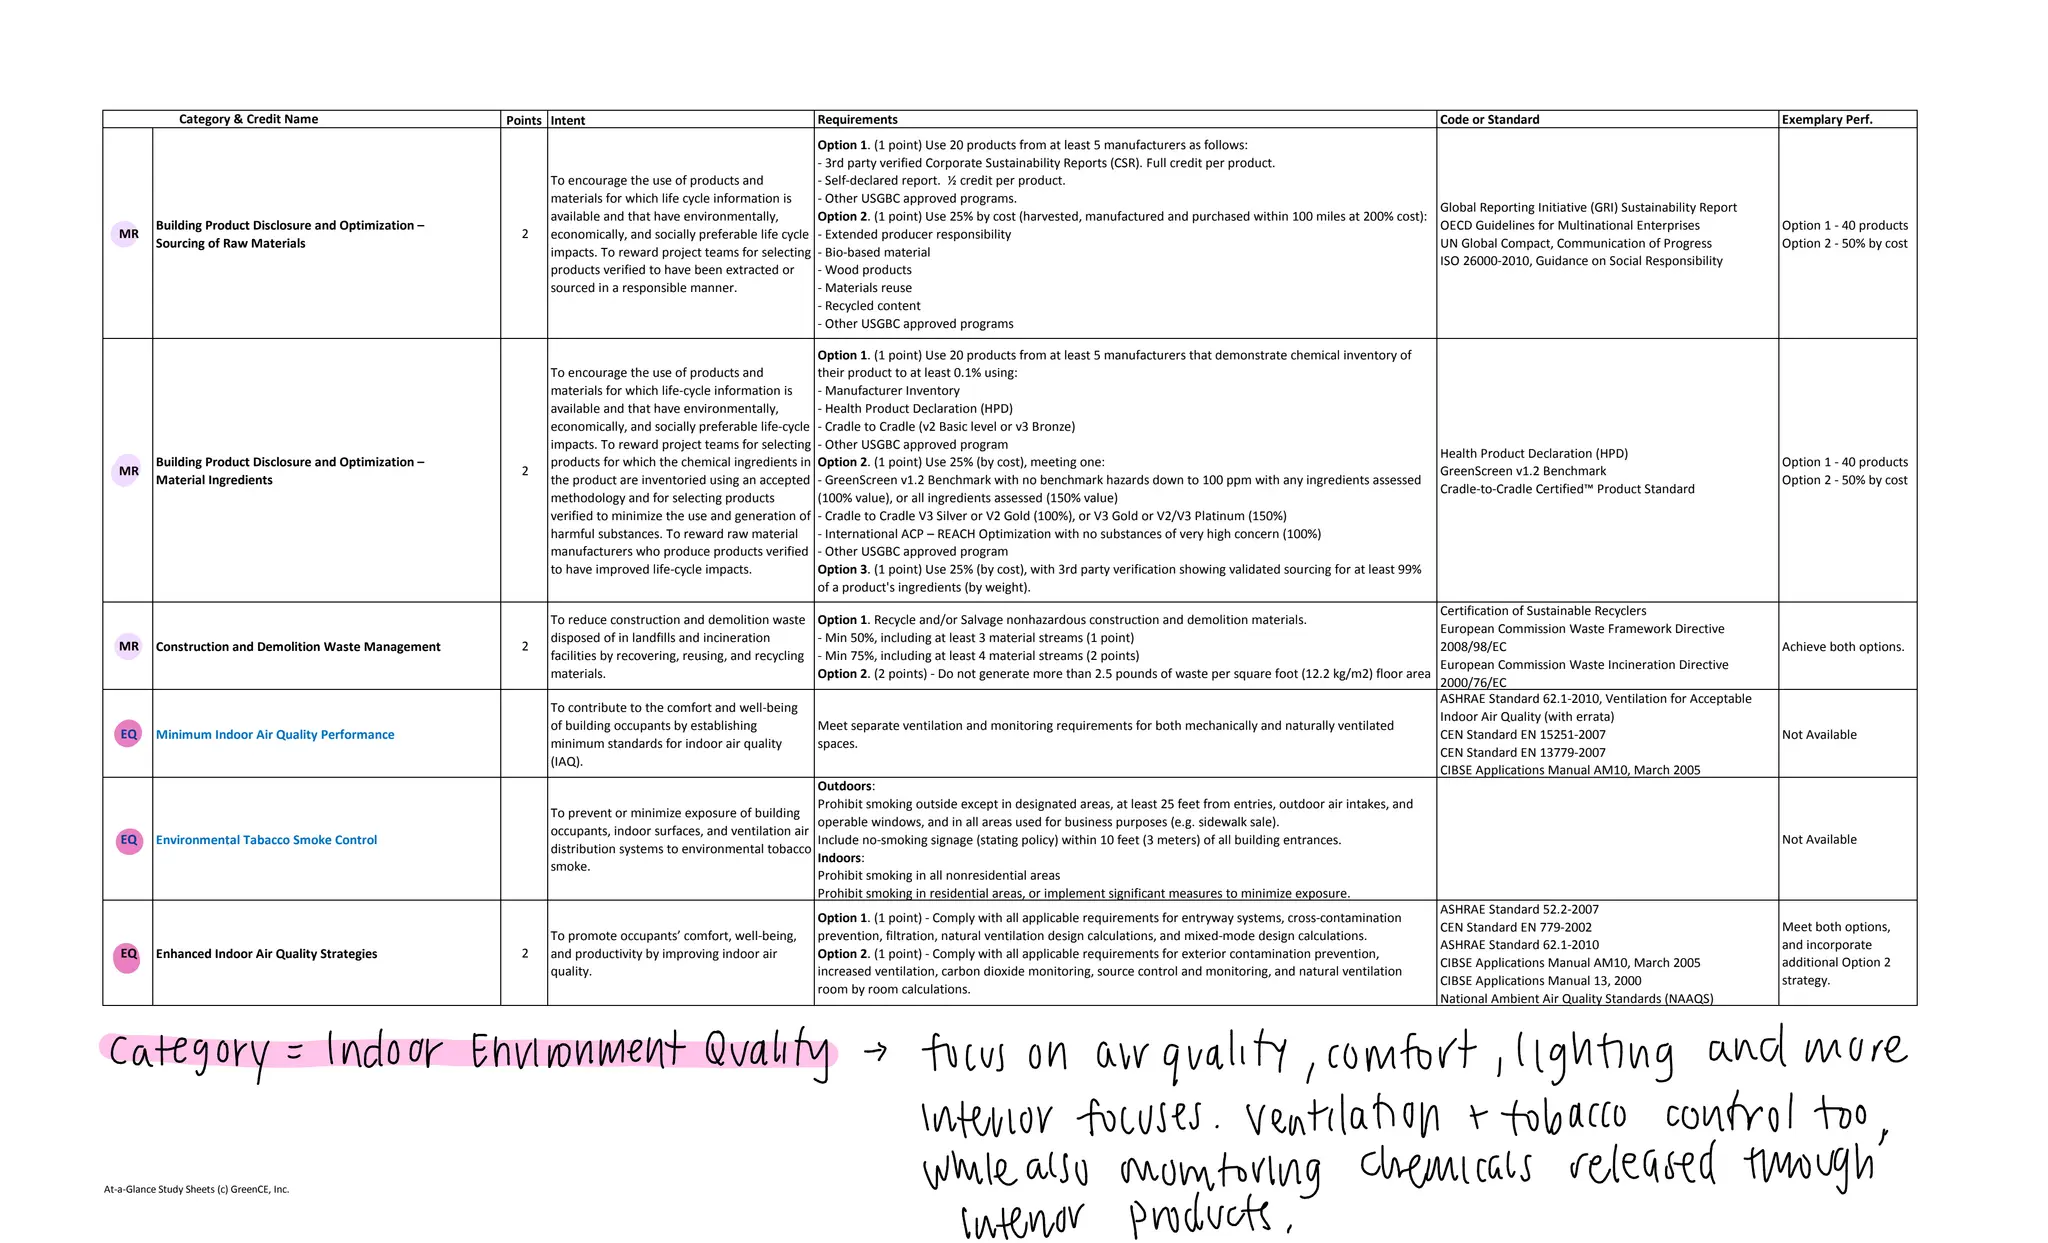 Category & Credit Name Points Intent Requirements Code or Standard Exemplary Perf.
MR
Building Product Disclosure and Optimization –
Sourcing of Raw Materials
2
To encourage the use of products and
materials for which life cycle information is
available and that have environmentally,
economically, and socially preferable life cycle
impacts. To reward project teams for selecting
products verified to have been extracted or
sourced in a responsible manner.
Option 1. (1 point) Use 20 products from at least 5 manufacturers as follows:
- 3rd party verified Corporate Sustainability Reports (CSR). Full credit per product.
- Self-declared report. ½ credit per product.
- Other USGBC approved programs.
Option 2. (1 point) Use 25% by cost (harvested, manufactured and purchased within 100 miles at 200% cost):
- Extended producer responsibility
- Bio-based material
- Wood products
- Materials reuse
- Recycled content
- Other USGBC approved programs
Global Reporting Initiative (GRI) Sustainability Report
OECD Guidelines for Multinational Enterprises
UN Global Compact, Communication of Progress
ISO 26000-2010, Guidance on Social Responsibility
Option 1 - 40 products
Option 2 - 50% by cost
MR
Building Product Disclosure and Optimization –
Material Ingredients
2
To encourage the use of products and
materials for which life-cycle information is
available and that have environmentally,
economically, and socially preferable life-cycle
impacts. To reward project teams for selecting
products for which the chemical ingredients in
the product are inventoried using an accepted
methodology and for selecting products
verified to minimize the use and generation of
harmful substances. To reward raw material
manufacturers who produce products verified
to have improved life-cycle impacts.
Option 1. (1 point) Use 20 products from at least 5 manufacturers that demonstrate chemical inventory of
their product to at least 0.1% using:
- Manufacturer Inventory
- Health Product Declaration (HPD)
- Cradle to Cradle (v2 Basic level or v3 Bronze)
- Other USGBC approved program
Option 2. (1 point) Use 25% (by cost), meeting one:
- GreenScreen v1.2 Benchmark with no benchmark hazards down to 100 ppm with any ingredients assessed
(100% value), or all ingredients assessed (150% value)
- Cradle to Cradle V3 Silver or V2 Gold (100%), or V3 Gold or V2/V3 Platinum (150%)
- International ACP – REACH Optimization with no substances of very high concern (100%)
- Other USGBC approved program
Option 3. (1 point) Use 25% (by cost), with 3rd party verification showing validated sourcing for at least 99%
of a product's ingredients (by weight).
Health Product Declaration (HPD)
GreenScreen v1.2 Benchmark
Cradle-to-Cradle Certified™ Product Standard
Option 1 - 40 products
Option 2 - 50% by cost
MR
Construction and Demolition Waste Management
2
To reduce construction and demolition waste
disposed of in landfills and incineration
facilities by recovering, reusing, and recycling
materials.
Option 1. Recycle and/or Salvage nonhazardous construction and demolition materials.
- Min 50%, including at least 3 material streams (1 point)
- Min 75%, including at least 4 material streams (2 points)
Option 2. (2 points) - Do not generate more than 2.5 pounds of waste per square foot (12.2 kg/m2) floor area
Certification of Sustainable Recyclers
European Commission Waste Framework Directive
2008/98/EC
European Commission Waste Incineration Directive
2000/76/EC
Achieve both options.
EQ
Minimum Indoor Air Quality Performance
To contribute to the comfort and well-being
of building occupants by establishing
minimum standards for indoor air quality
(IAQ).
Meet separate ventilation and monitoring requirements for both mechanically and naturally ventilated
spaces.
ASHRAE Standard 62.1-2010, Ventilation for Acceptable
Indoor Air Quality (with errata)
CEN Standard EN 15251-2007
CEN Standard EN 13779-2007
CIBSE Applications Manual AM10, March 2005
Not Available
EQ
Environmental Tabacco Smoke Control
To prevent or minimize exposure of building
occupants, indoor surfaces, and ventilation air
distribution systems to environmental tobacco
smoke.
Outdoors:
Prohibit smoking outside except in designated areas, at least 25 feet from entries, outdoor air intakes, and
operable windows, and in all areas used for business purposes (e.g. sidewalk sale).
Include no-smoking signage (stating policy) within 10 feet (3 meters) of all building entrances.
Indoors:
Prohibit smoking in all nonresidential areas
Prohibit smoking in residential areas, or implement significant measures to minimize exposure.
Not Available
EQ
Enhanced Indoor Air Quality Strategies
2
To promote occupants’ comfort, well-being,
and productivity by improving indoor air
quality.
Option 1. (1 point) - Comply with all applicable requirements for entryway systems, cross-contamination
prevention, filtration, natural ventilation design calculations, and mixed-mode design calculations.
Option 2. (1 point) - Comply with all applicable requirements for exterior contamination prevention,
increased ventilation, carbon dioxide monitoring, source control and monitoring, and natural ventilation
room by room calculations.
ASHRAE Standard 52.2-2007
CEN Standard EN 779-2002
ASHRAE Standard 62.1-2010
CIBSE Applications Manual AM10, March 2005
CIBSE Applications Manual 13, 2000
National Ambient Air Quality Standards (NAAQS)
Meet both options,
and incorporate
additional Option 2
strategy.
Category = Indoor Environment Quality → focus on air quality, comfort, lighting and more
interior focuses. Ventilation + tobacco control too,
while also monitoring chemicals released through
interior products.
At-a-Glance Study Sheets (c) GreenCE, Inc.